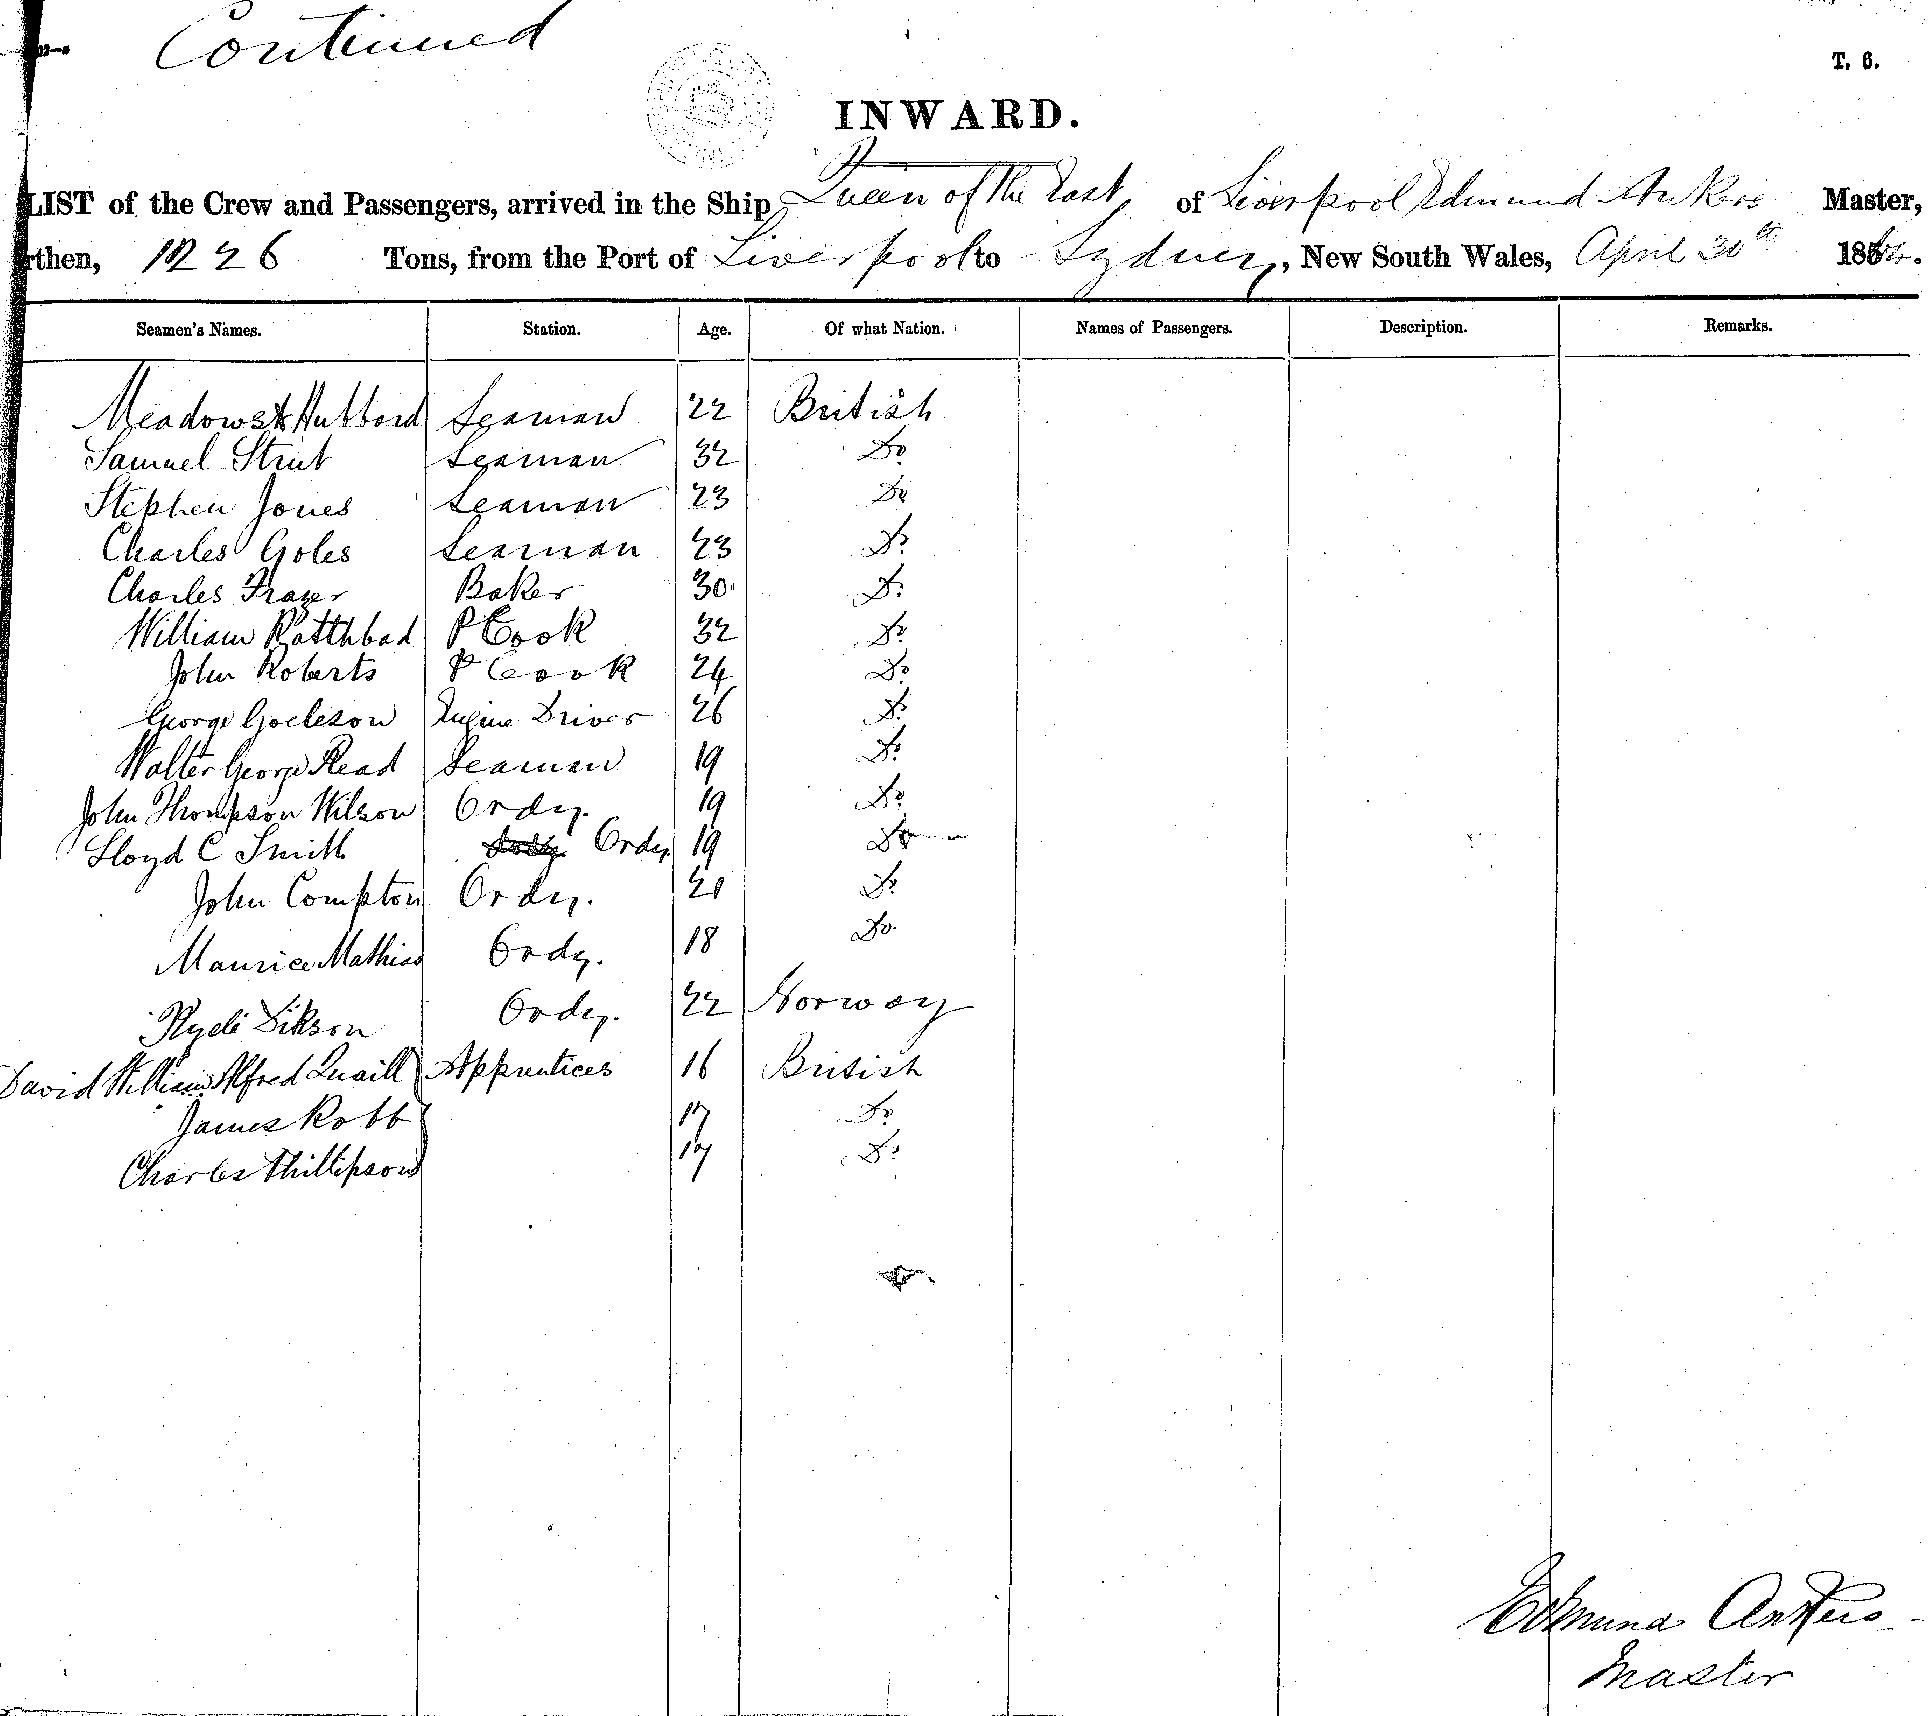 Continued
T. 6.
INWARD.
LIST of the Crew and Passengers, arrived in the Ship Queen of the East of Liverpool Edmund Ankers Master,
rthen, 1226 Tons, from the Port of Liverpool to Sydney, New South Wales, April 30th 186
Seamen's Names. Station. Age. Of what Nation. Names of Passengers. Description. Remarks.
Meadows Hubbard Seaman 22 British
Samuel Strut Seaman 32 Do
Stephen Jones Seaman 23 Do
Charles Goles Seaman 23 Do
Charles Frazer Baker 30 Do
William P Cook 32 Do
John Roberts P Cook 24 Do
George Engine Driver 26 Do
Walter George Read Seaman 19 Do
John Thompson Wilson Ordy. 19 Do
Lloyd C Smith Ordy. 19 Do
John Compton Ordy. 20 Do
Maurice Mathias Ordy. 18 Do
Ordy. 22 Norway
David William Alfred Quaill Apprentices 16 British
James Robb 17 Do
Charles Phillipson 17 Do
Edmund Ankers
Master